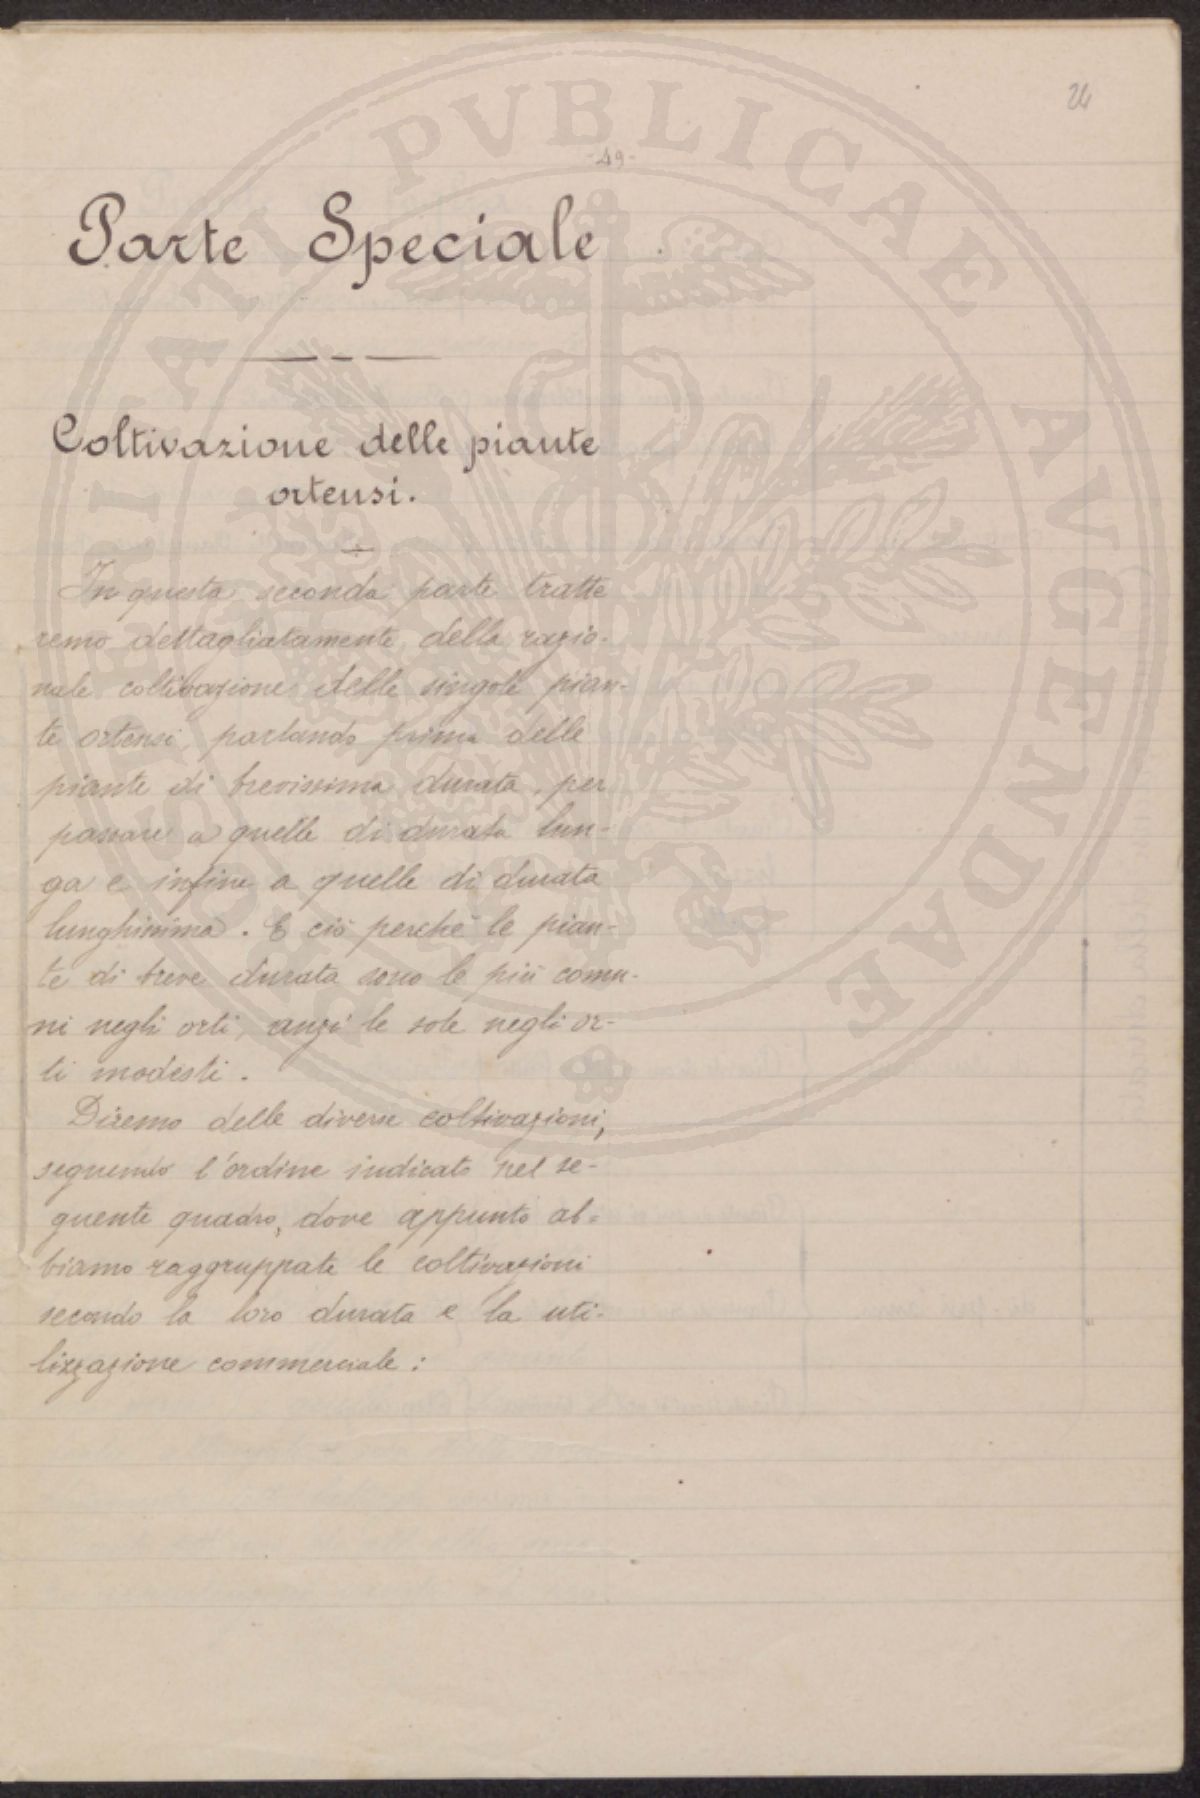 24
-49-
Parte Speciale
Coltivazione delle piante
ortensi.
In questa seconda parte tratte
remo dettagliatamente della razio-
nale coltivazione delle singole pian-
te ortensi, parlando prima delle
piante di brevissima durata, per
passare a quelle di durata lun-
ga e infine a quelle di durata
lunghissima. E ciò perchè le pian-
te di breve durata sono le più comu-
ni negli orti, anzi le sole negli or-
ti modesti.
Diremo delle diverse coltivazioni,
seguendo l'ordine indicato nel se-
guente quadro, dove appunto ab=
biamo raggruppate le coltivazioni
secondo la loro durata e la uti-
lizzazione commerciale:
PUBLICAE AUGENDAE